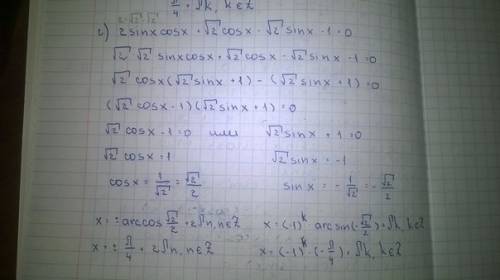 π/4 + πk, k∈Z
2·√2·√2
г) 2sinxcosx + √2cosx - √2sinx - 1 = 0
√2·√2 sinxcosx + √2cosx - √2sinx - 1 = 0
√2cosx(√2sinx + 1) - (√2sinx + 1) = 0
(√2cosx - 1)(√2sinx + 1) = 0
√2cosx - 1 = 0 или √2sinx + 1 = 0
√2cosx = 1 √2sinx = -1
cosx = 1/√2 = √2/2 sinx = -1/√2 = -√2/2
x = ± arccos √2/2 + 2πn, n∈Z x = (-1)^k arcsin(-√2/2) + πk, k∈Z
x = ± π/4 + 2πn, n∈Z x = (-1)^k · (-π/4) + πk, k∈Z